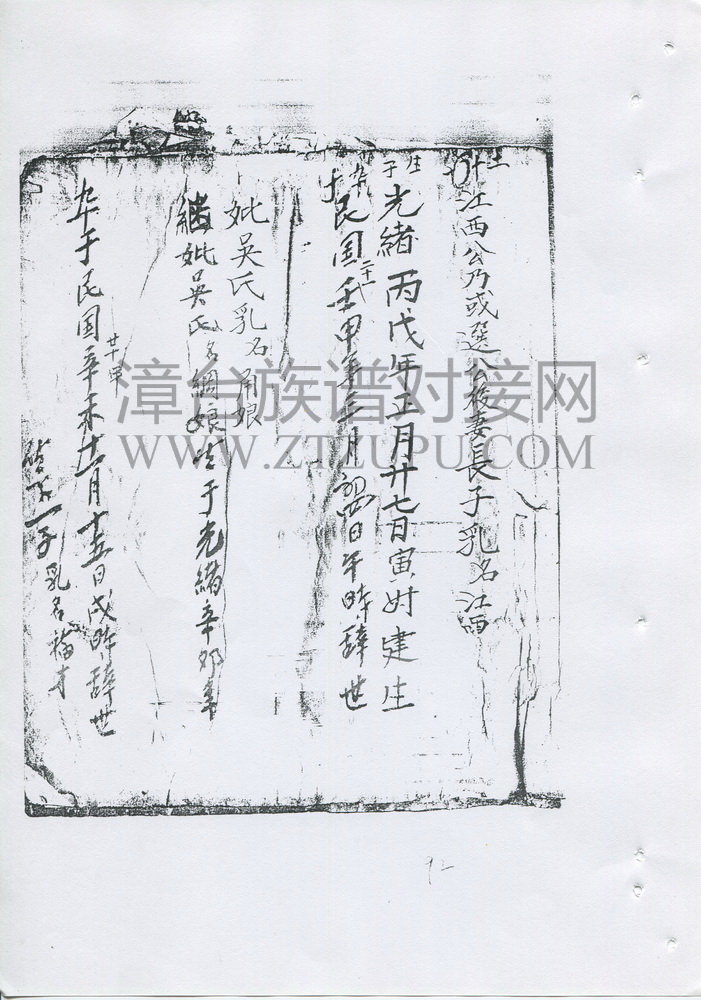 江西公乃或選公後妻長子乳名江西
生于光緒丙戌年五月廿七日寅时建生
卒于民国二十一壬申年三月初四日午时辞世
妣吳氏乳名角娘
継妣吳氏名綢娘生于光緒辛卯年
卒于民国廿年辛未十一月十五日戌时辞世
一子乳名福才
漳台族谱对接网
WWW.ZTZUPU.COM
92